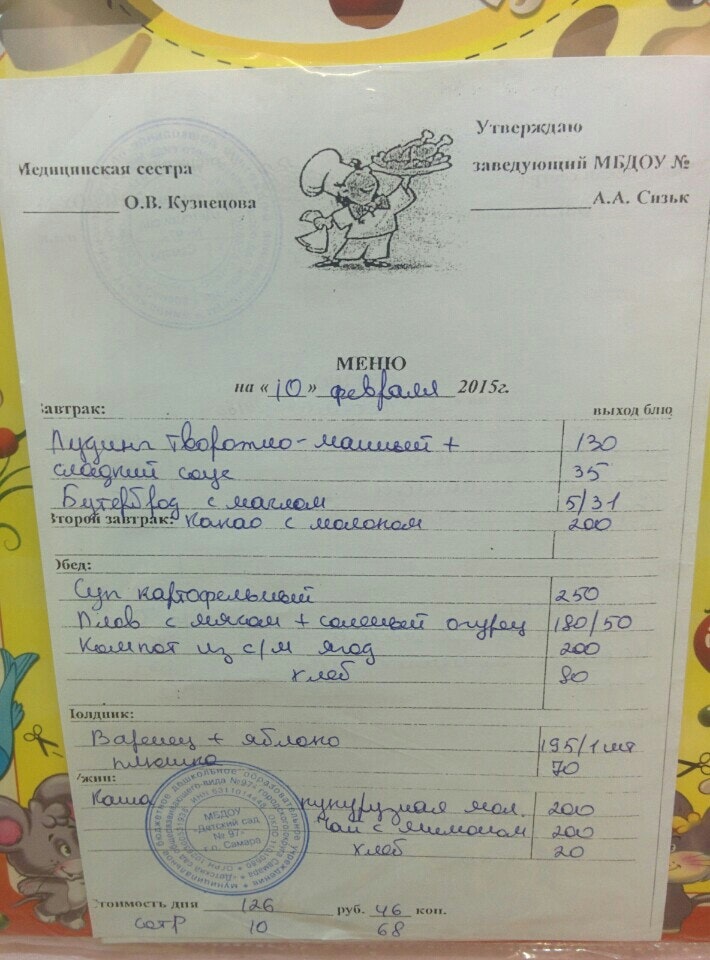 Утверждаю
Медицинская сестра
заведующий МБДОУ №
О.В. Кузнецова
А.А. Сизьк
МЕНЮ
на «10» февраля 2015г.
Завтрак: выход блю
Пудинг творожно-манный + 130
сладкий соус 35
Бутерброд с маслом 5/31
Второй завтрак: Какао с молоком 200
Обед:
Суп картофельный 250
Плов с мясом + соленый огурец 180/50
Компот из с/м ягод 200
хлеб 80
Полдник:
Варенец + яблоко 195/1 шт
плюшка 70
Ужин:
Каша кукурузная мол. 200
Чай с лимоном 200
хлеб 20
МБДОУ
«Детский сад
№ 97»
г.о. Самара
Стоимость дня 126 руб. 46 коп.
сотр 10 68